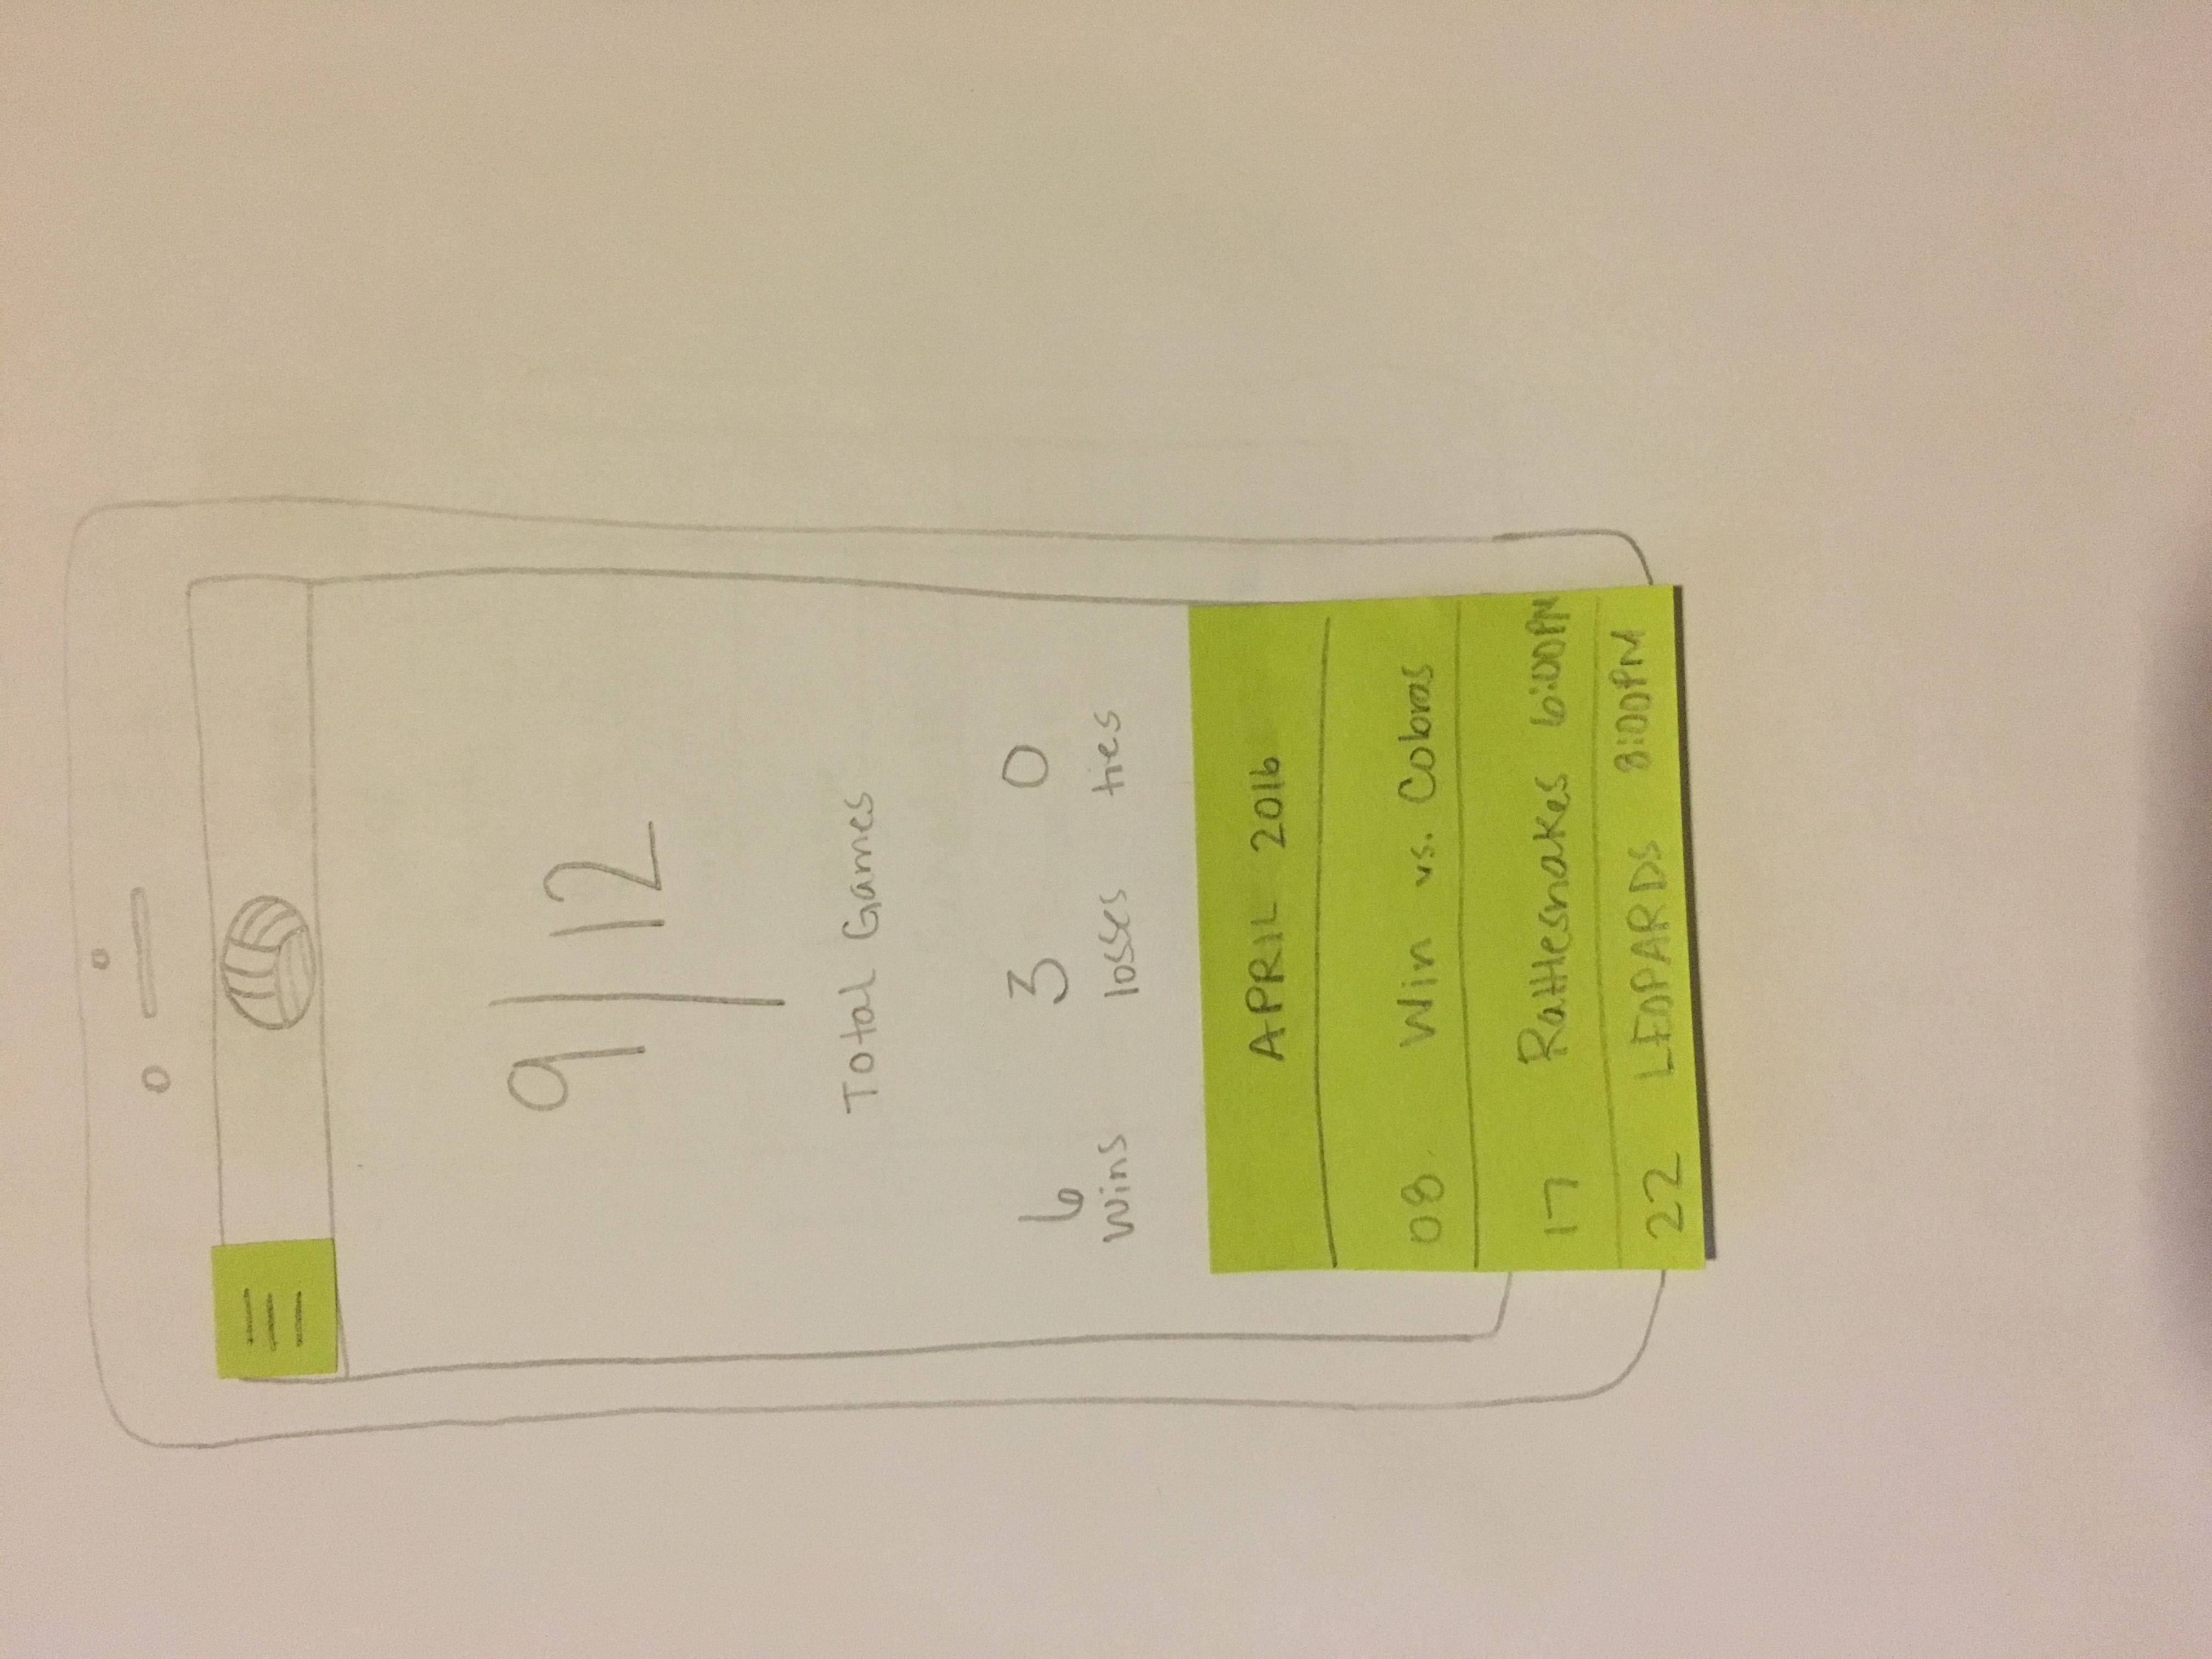 9/12
Total Games
6 3 0
wins losses ties
APRIL 2016
08 Win vs. Cobras
17 Rattlesnakes 6:00PM
22 LEOPARDS 8:00PM